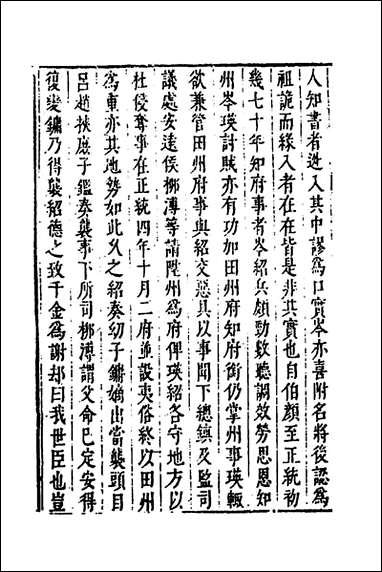 人知書者迯入其中謬爲口實岑亦喜附名將後認爲
祖詭而緣入者在在皆是非其實也自伯顔至正統初
幾七十年知府事者岑紹兵頗勁数聽調效勞思恩知
州岑瑛討賊亦有功加田州府知府銜仍掌州事瑛輙
欲兼管田州府事與紹交惡具以事聞下總鎮及監司
議處安遠侯栁溥等請陞州爲府俾瑛紹各守地方以
杜侵奪事在正統四年十月二府並設夷俗終以田州
爲重亦其地勢如此久之紹奏幼子鏞嫡出當襲頭目
呂趙挾庶子鑑奏襲事下所司栁溥謂父命已定安得
復變鏞乃得襲紹德之致千金爲謝却曰我世臣也豈